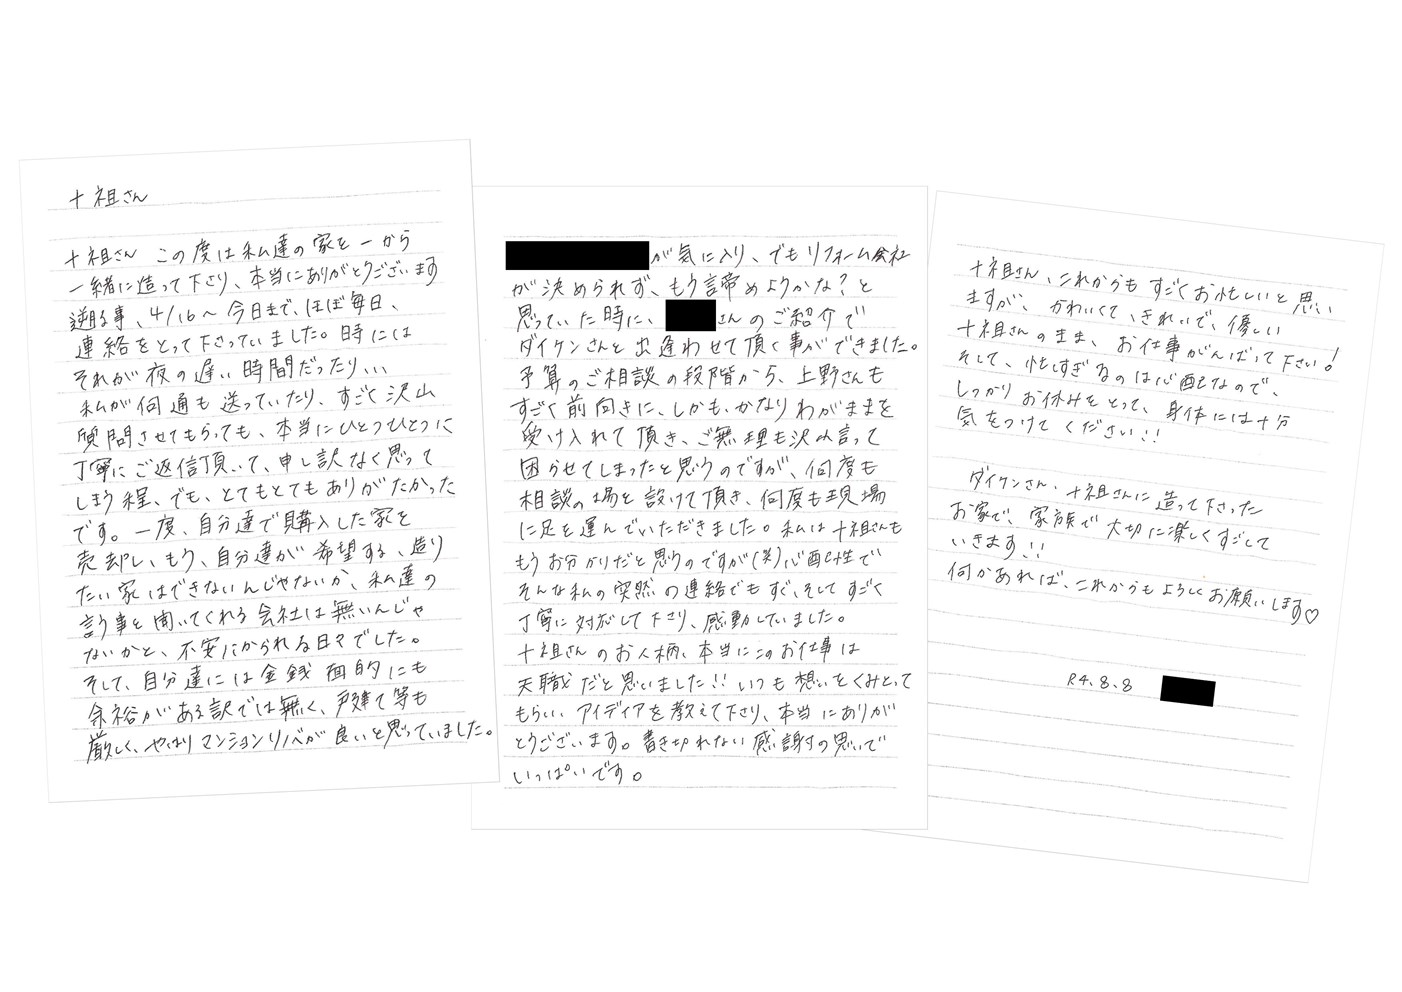 十祖さん
十祖さん この度は私達の家を一から
一緒に造って下さり、本当にありがとうございます
遡る事、4/16〜今日まで、ほぼ毎日、
連絡をとって下さっていました。時には
それが夜の遅い時間だったり...
私が何通も送っていたり、すごく沢山
質問させてもらっても、本当にひとつひとつに
丁寧にご返信頂いて、申し訳なく思って
しまう程、でも、とてもとてもありがたかった
です。一度、自分達で購入した家を
売却し、もう、自分達が希望する、造り
たい家はできないんじゃないか、私達の
言う事を聞いてくれる会社は無いんじゃ
ないかと、不安にかられる日々でした。
そして、自分達には金銭面的にも
余裕がある訳では無く、戸建て等も
厳しく、やはりマンションリノベが良いと思っていました。
が気に入り、でもリフォーム会社
が決められず、もう諦めようかな?と
思っていた時に、 さんのご紹介で
ダイケンさんと出逢わせて頂く事ができました。
予算のご相談の段階から、上野さんも
すごく前向きに、しかも、かなりわがままを
受け入れて頂き、ご無理も沢山言って
困らせてしまったと思うのですが、何度も
相談の場を設けて頂き、何度も現場
に足を運んでいただきました。私は十祖さんも
もうお分かりだと思うのですが(笑)心配性で
そんな私の突然の連絡でもすぐ、そしてすごく
丁寧に対応して下さり、感動していました。
十祖さんのお人柄、本当にこのお仕事は
天職だと思いました!!いつも想いをくみとって
もらい、アイディアを教えて下さり、本当にありが
とうございます。書き切れない感謝の思いで
いっぱいです。
十祖さん、これからもすごくお忙しいと思い
ますが、かわいくて、きれいで、優しい
十祖さんのまま、お仕事がんばって下さい!
そして、忙しすぎるのは心配なので、
しっかりお休みをとって、身体には十分
気をつけてください!!
ダイケンさん・十祖さんに造って下さった
お家で、家族で大切に楽しくすごして
いきます!!
何かあれば、これからもよろしくお願いします♡
R4.8.8